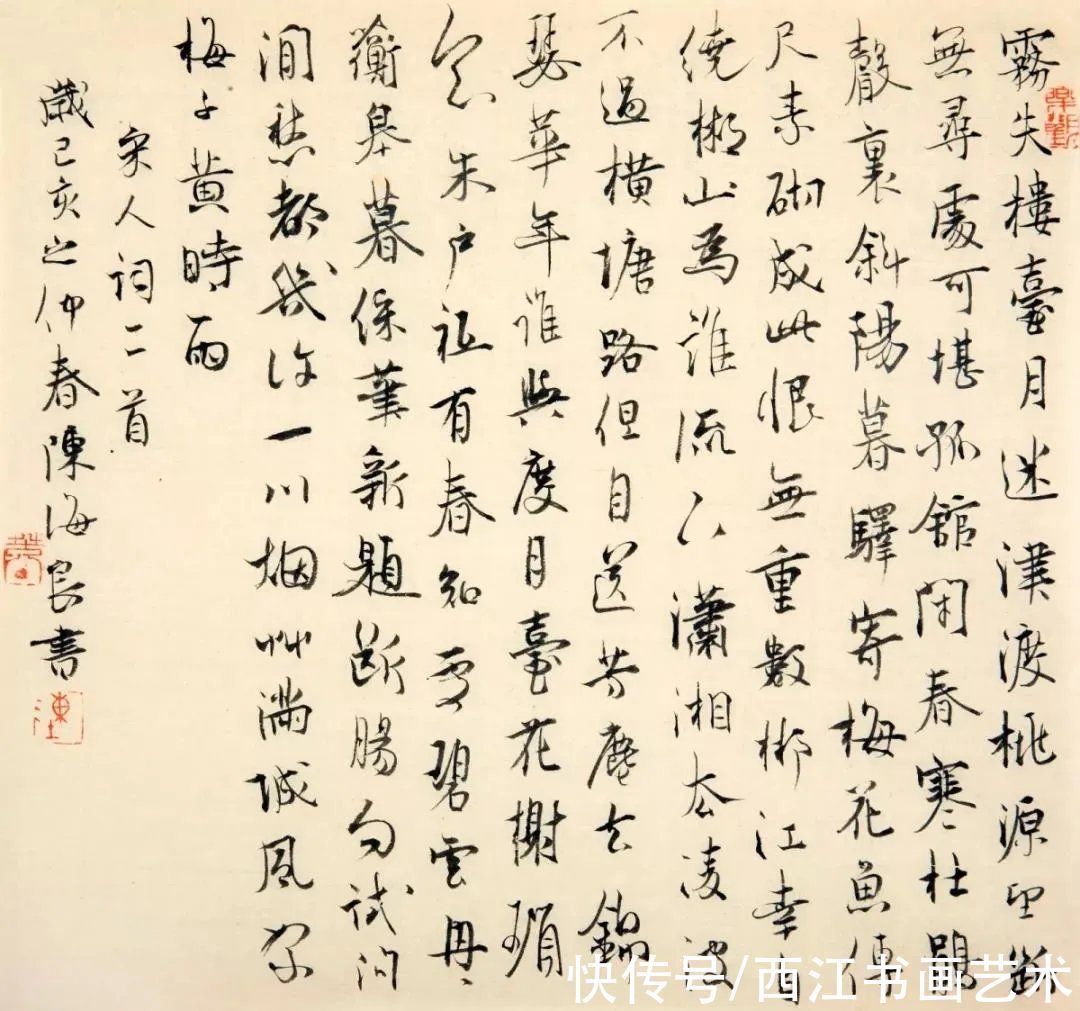 霧失樓臺月迷津渡桃源望斷
無尋處可堪孤館閉春寒杜鵑
聲裏斜陽暮驛寄梅花魚傳
尺素砌成此恨無重數郴江幸自
繞郴山為誰流下瀟湘去凌波
不過橫塘路但目送芳塵去錦
瑟華年誰與度月臺花榭瑣
窗朱户祗有春知處碧雲冉冉
蘅皋暮綵筆新題斷腸句試問
閒愁都幾許一川烟艸滿城風絮
梅子黄時雨
宋人詞二首
歲己亥之仲春陳海良書
快传号/西江书画艺术